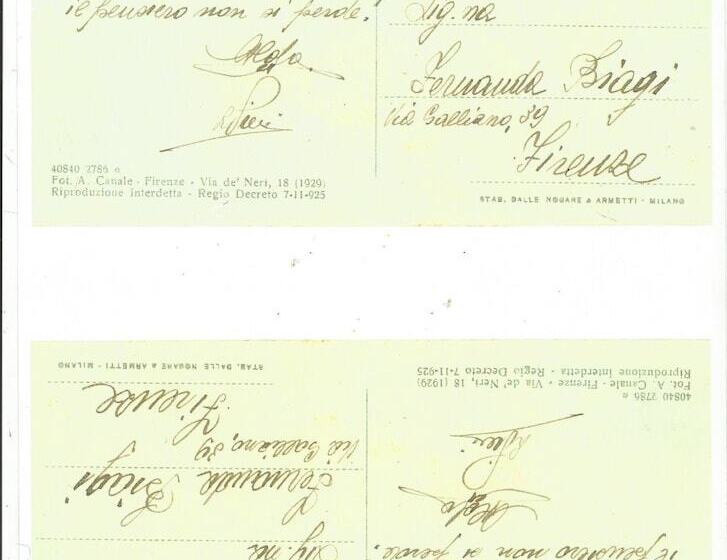 il pensiero non si perde.
Sig.na
Aldo
Fernanda Biagi
Pieri
Via Galliano, 39
Firenze
40840 2786 e
Fot. A. Canale - Firenze - Via de' Neri, 18 (1929)
Riproduzione Interdetta - Regio Decreto 7-11-925
STAB. DALLE NOGARE & ARMETTI - MILANO
STAB. DALLE NOGARE & ARMETTI - MILANO
40840 2786 e
Fot. A. Canale - Firenze - Via de' Neri, 18 (1929)
Riproduzione Interdetta - Regio Decreto 7-11-925
Firenze
Via Galliano, 39
Pieri
Fernanda Biagi
Aldo
Sig.na
il pensiero non si perde.